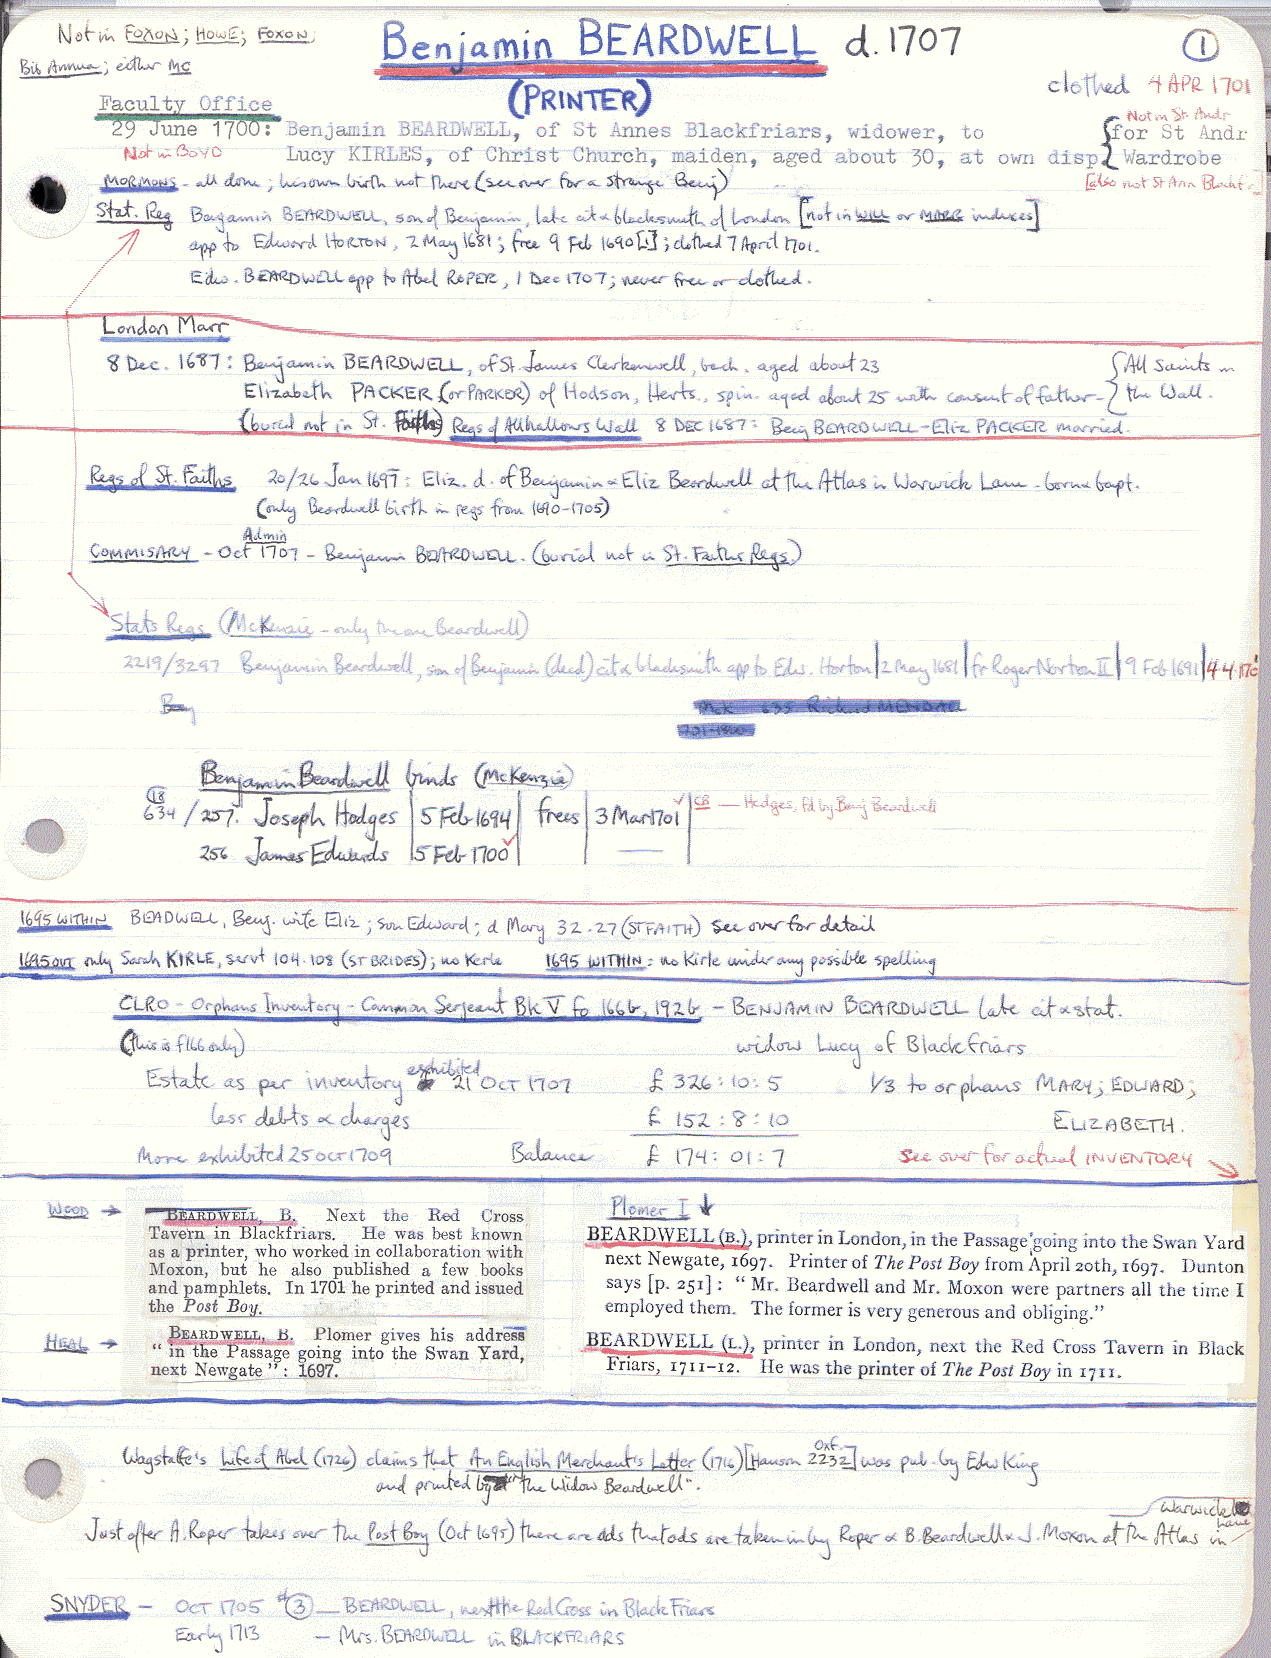 Not in FOXON; HOWE; FOXON;
Bib Annua; either MC
Benjamin BEARDWELL d. 1707
(PRINTER)
1
clothed 4 APR 1701
Faculty Office
29 June 1700: Benjamin BEARDWELL, of St Annes Blackfriars, widower, to
Not in St. Andr
for St Andr
Not in BOYD
Lucy KIRLES, of Christ Church, maiden, aged about 30, at own disp
Wardrobe
[also not St Ann Blackf.]
MORMONS - all done; his own birth not there (see over for a strange Benj)
Stat. Reg Benjamin BEARDWELL, son of Benjamin, late cit & blacksmith of London [not in WILL or MARR indexes]
app to Edward HORTON, 2 May 1681; free 9 Feb 1690[1]; clothed 7 April 1701.
Edw. BEARDWELL app to Abel ROPER, 1 Dec 1707; never free or clothed.
London Marr
8 Dec. 1687: Benjamin BEARDWELL, of St. James Clerkenwell, bach. aged about 23
Elizabeth PACKER (or PARKER) of Hodson, Herts., spin. aged about 25 with consent of father -
All Saints in the Wall.
(burial not in St. Faiths) Regs of Allhallows Wall 8 DEC 1687: Benj BEARDWELL - Eliz PACKER married.
Regs of St. Faiths 20/26 Jan 1697: Eliz. d. of Benjamin & Eliz Beardwell at the Atlas in Warwick Lane - born & bapt.
(only Beardwell birth in regs from 1690-1705)
Admin
COMMISARY - Oct 1707 - Benjamin BEARDWELL. (burial not in St. Faiths Regs.)
Stats Regs (McKenzie - only the one Beardwell)
2219/3297 Benjamin Beardwell, son of Benjamin (decd) cit & blacksmith app to Edw. Horton | 2 May 1681 | fr Roger Norton II | 9 Feb 1691 | 4.4.170
Benj
Benjamin Beardwell binds (McKenzie)
18
634 / 257. Joseph Hodges | 5 Feb 1694 | frees | 3 Mar 1701 | CB — Hodges, fd by Benj Beardwell
256 James Edwards | 5 Feb 1700
1695 WITHIN BEADWELL, Benj. wife Eliz; son Edward; d Mary 32.27 (ST FAITH) see over for detail
1695 OUT only Sarah KIRLE, servt 104.108 (ST BRIDES); no Kerle 1695 WITHIN: no Kirle under any possible spelling
CLRO - Orphans Inventory - Common Serjeant Bk V fo 166b, 192b - BENJAMIN BEARDWELL late cit & stat.
(this is f166 only) widow Lucy of Blackfriars
Estate as per inventory exhibited 21 OCT 1707 £ 326:10:5 1/3 to orphans MARY; EDWARD;
less debts & charges £ 152:8:10 ELIZABETH.
More exhibited 25 OCT 1709 Balance £ 174:01:7 See over for actual INVENTORY
WOOD →
BEARDWELL, B. Next the Red Cross
Tavern in Blackfriars. He was best known
as a printer, who worked in collaboration with
Moxon, but he also published a few books
and pamphlets. In 1701 he printed and issued
the Post Boy.
HEAL →
BEARDWELL, B. Plomer gives his address
“in the Passage going into the Swan Yard,
next Newgate”: 1697.
Plomer I ↓
BEARDWELL (B.), printer in London, in the Passage going into the Swan Yard
next Newgate, 1697. Printer of The Post Boy from April 20th, 1697. Dunton
says [p. 251]: “Mr. Beardwell and Mr. Moxon were partners all the time I
employed them. The former is very generous and obliging.”
BEARDWELL (L.), printer in London, next the Red Cross Tavern in Black
Friars, 1711-12. He was the printer of The Post Boy in 1711.
Wagstaffe's Life of Abel (1726) claims that An English Merchant's Letter (1716) [Hanson Oxf. 2232] was pub. by Edw King
and printed by "the Widow Beardwell".
Warwick Lane
Just after A. Roper takes over the Post Boy (Oct 1695) there are ads that ads are taken in by Roper & B. Beardwell & J. Moxon at the Atlas in
SNYDER - OCT 1705 #3 — BEARDWELL, next the Red Cross in Black Friars
Early 1713 — Mrs. BEARDWELL in BLACKFRIARS